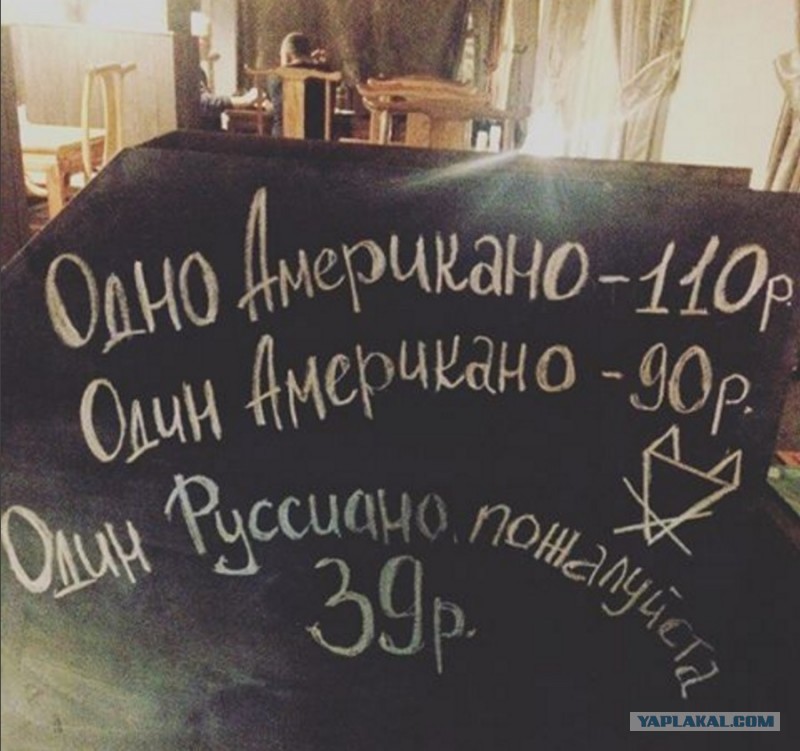 Одно Американо - 110р.
Один Американо - 90р.
Один Руссиано, пожалуйста
39р.
YAPLAKAL.COM